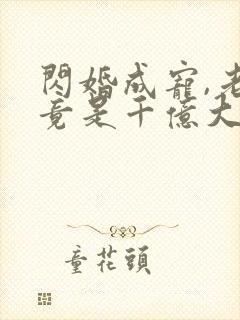 閃婚成寵,老
竟是千億大
童花頭